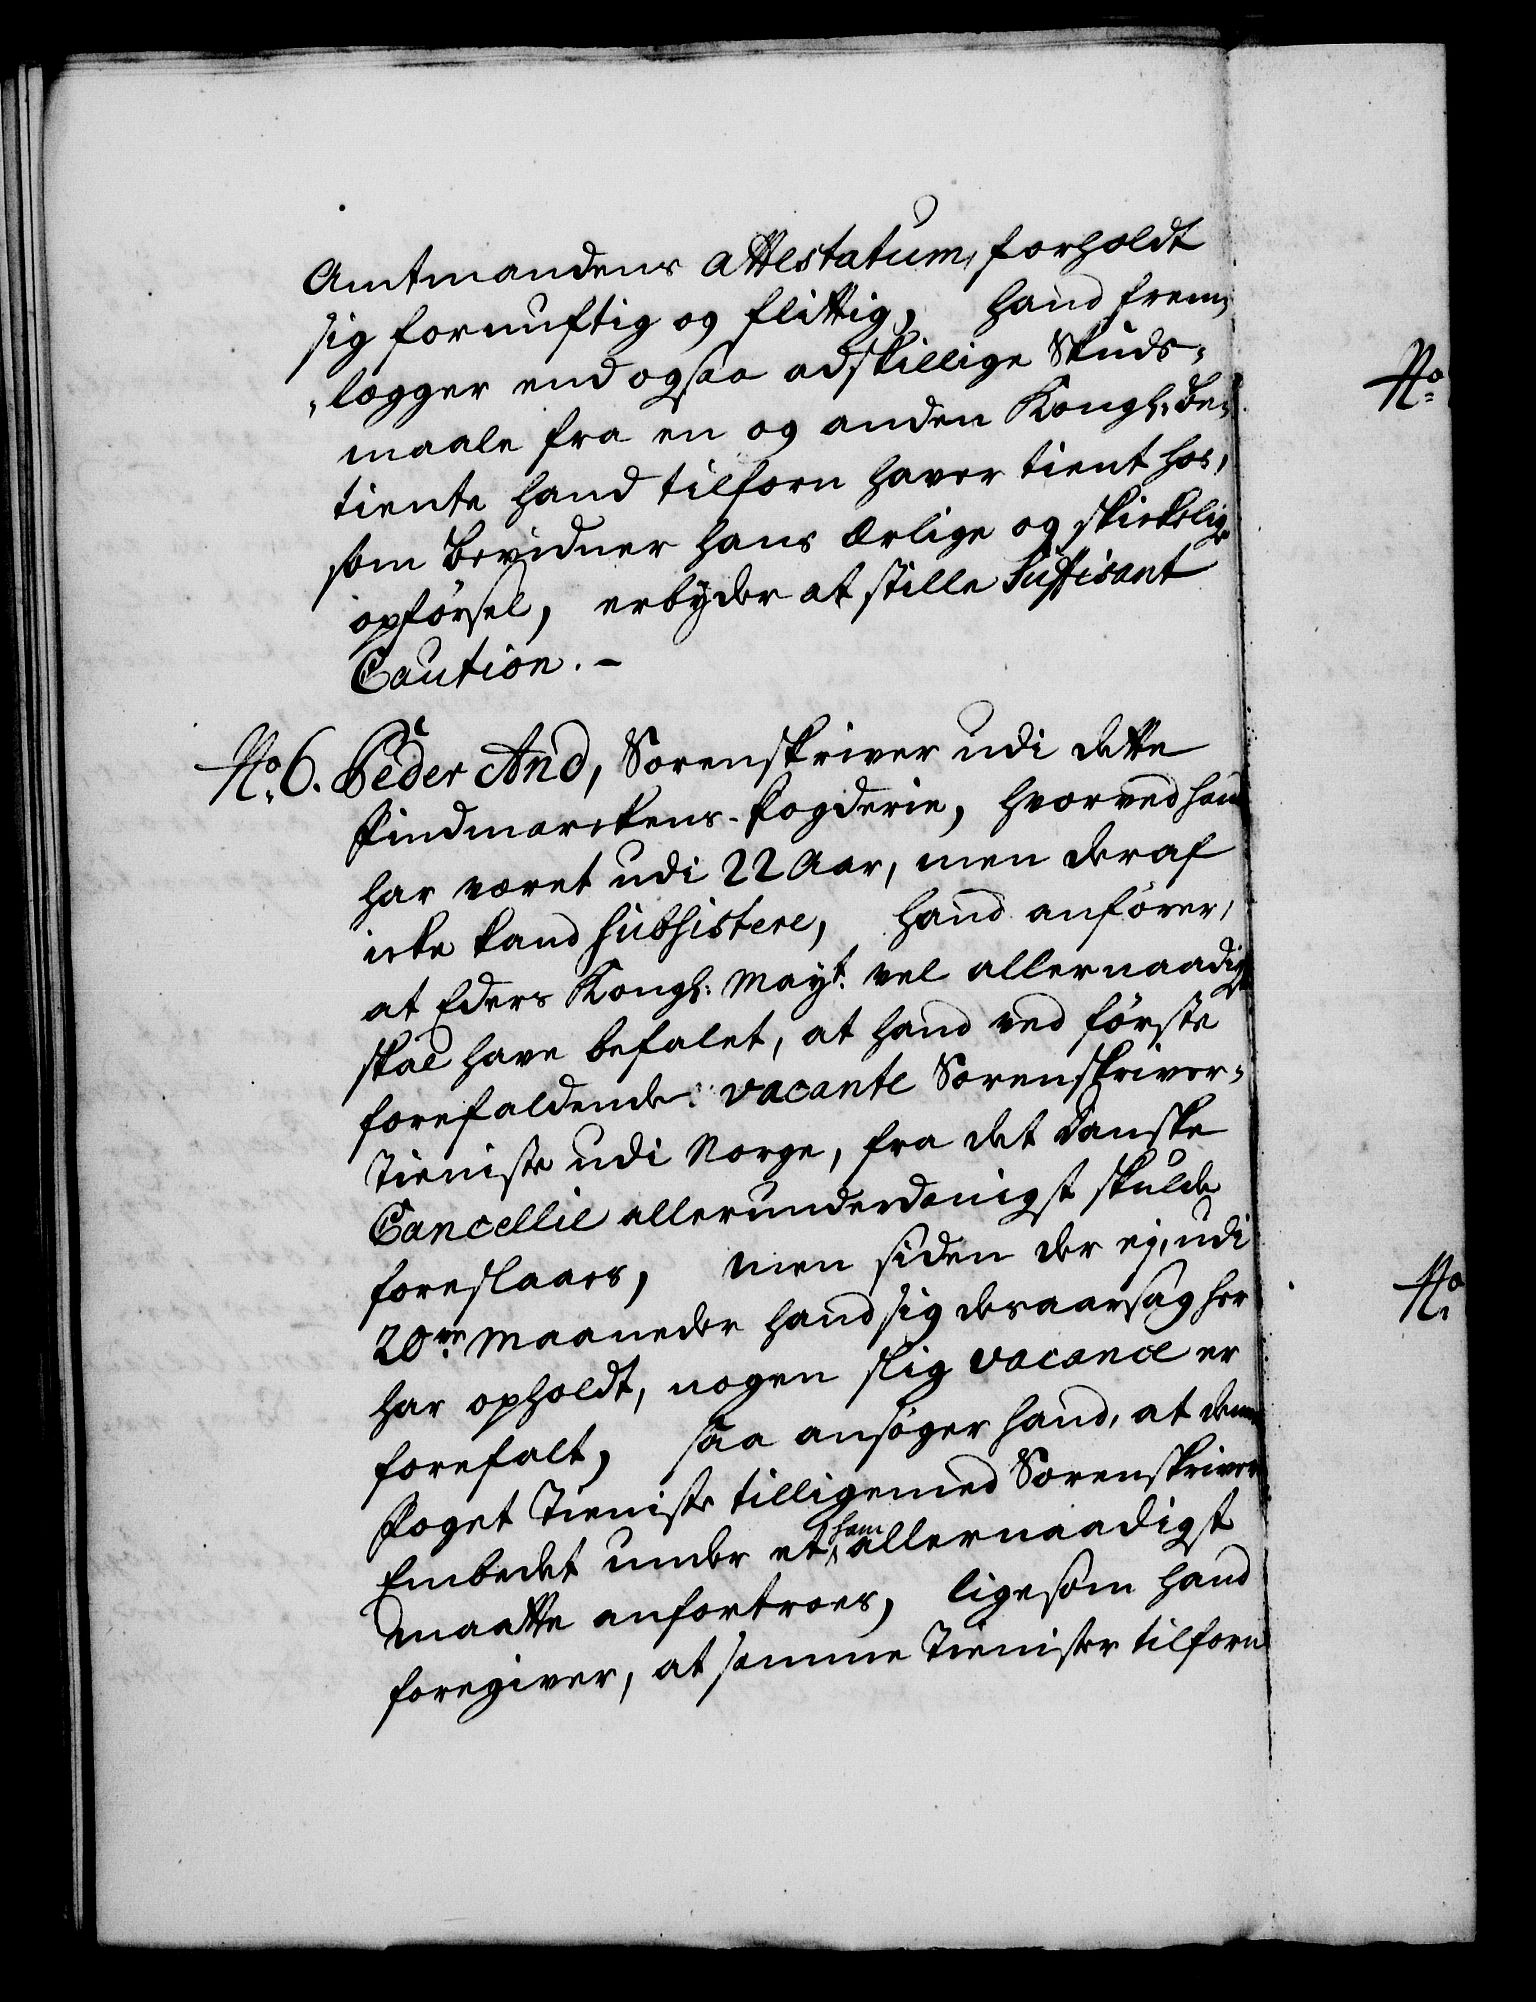 Amtmandens attestatum, forholdt
sig fornuftig og flittig, hand frem-
lægger end ogsaa adskillige Skuds-
maale fra en og anden Kongl: Be-
tiente hand tilforn haver tient hos,
som bevidner hans ærlige og skickelig
opförsel, erbyder at stille suffisant
Caution. -
No. 6. Peder And, Sorenskriver udi dette
Findmarckens-Fogderie, hvorved hand
har været udi 22 Aar, men deraf
icke kand subsistere, hand anförer,
at Eders Kongl: Mayt. vel allernaadigst
skal have befalet, at hand ved förste
forefaldende vacante Sorenskriver-
Tieniste udi Norge, fra det Danske
Cancellie allerunderdanigst skulde
foreslaaes, men siden der ej, udi
20ve Maaneder hand sig desaarsag her
har opholdt, nogen slig vacance er
forefalt, saa ansöger hand, at denne
Foget Tieniste tilligemed Sorenskriver
Embedet under et ham allernaadigst
maatte anfortroes, ligesom hand
foregiver, at samme Tienister tilforn
No
No